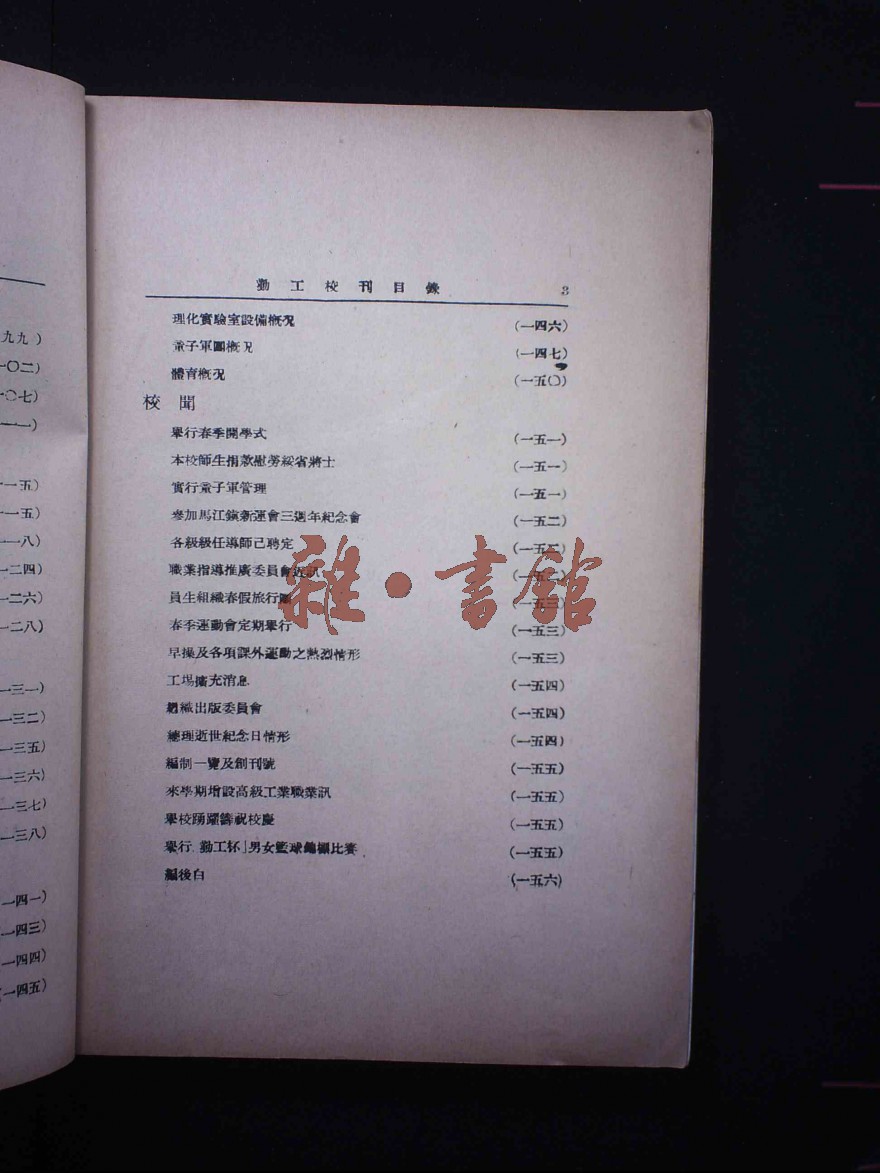 九九)
一〇二)
一〇七)
一一一)
一一五)
一一五)
一一八)
一二四)
一二六)
一二八)
一三一)
一三二)
一三五)
一三六)
一三七)
一三八)
一四一)
一四三)
一四四)
(一四五)
勤工校刊目錄 3
理化實驗室設備概況 (一四六)
童子軍團概況 (一四七)
體育概況 (一五〇)
校聞
舉行春季開學式 (一五一)
本校師生捐款慰勞綏省將士 (一五一)
實行童子軍管理 (一五一)
參加馬江鎮新運會三週年紀念會 (一五二)
各級級任導師已聘定 (一五二)
職業指導推廣委員會近訊 (一五二)
員生組織春假旅行團 (一五三)
春季運動會定期舉行 (一五三)
早操及各項課外運動之熱烈情形 (一五三)
工場擴充消息 (一五四)
組織出版委員會 (一五四)
總理逝世紀念日情形 (一五四)
編制一覽及創刊號 (一五五)
來學期增設高級工業職業訊 (一五五)
舉校踴躍籌祝校慶 (一五五)
舉行「勤工杯」男女籃球錦標比賽 (一五五)
編後白 (一五六)
雜·書館